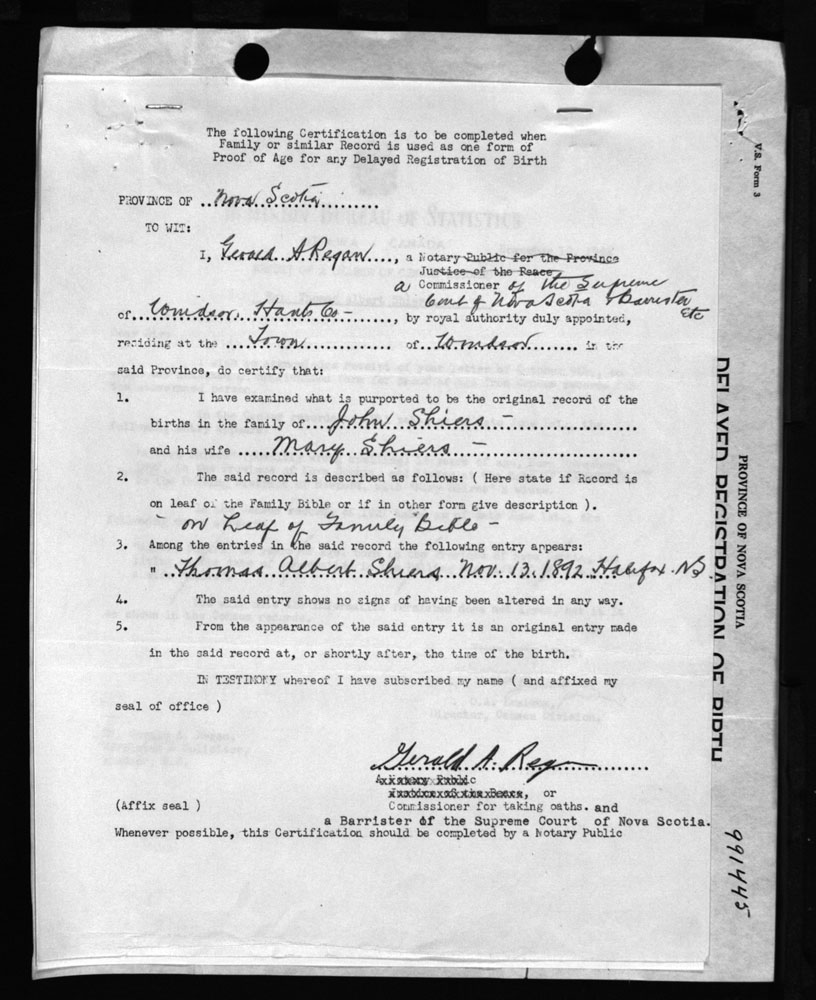 The following Certification is to be completed when
Family or similar Record is used as one form of
Proof of Age for any Delayed Registration of Birth
PROVINCE OF ..Nova Scotia..........
TO WIT:
I, Gerald A. Regan...., a Notary Public for the Province
Justice of the Peace
a Commissioner of the Supreme
Court of Nova Scotia & Barrister
etc
of..Windsor, Hants Co-......, by royal authority duly appointed,
residing at the ...Town............ of..Windsor........ in the
said Province, do certify that:
1. I have examined what is purported to be the original record of the
births in the family of...John Shiers -..................
and his wife .....Mary Shiers -........................
2. The said record is described as follows: ( Here state if Record is
on leaf of the Family Bible or if in other form give description ).
- on Leaf of Family Bible -
3. Among the entries in the said record the following entry appears:
" Thomas Albert Shiers Nov. 13. 1892 Halifax. NS
4. The said entry shows no signs of having been altered in any way.
5. From the appearance of the said entry it is an original entry made
in the said record at, or shortly after, the time of the birth.
IN TESTIMONY whereof I have subscribed my name ( and affixed my
seal of office )
Gerald A. Regan
A Notary Public
, or
(Affix seal ) Commissioner for taking oaths. and
a Barrister of the Supreme Court of Nova Scotia.
Whenever possible, this Certification should be completed by a Notary Public
V.S. Form 3
PROVINCE OF NOVA SCOTIA
DELAYED REGISTRATION OF BIRTH
991445